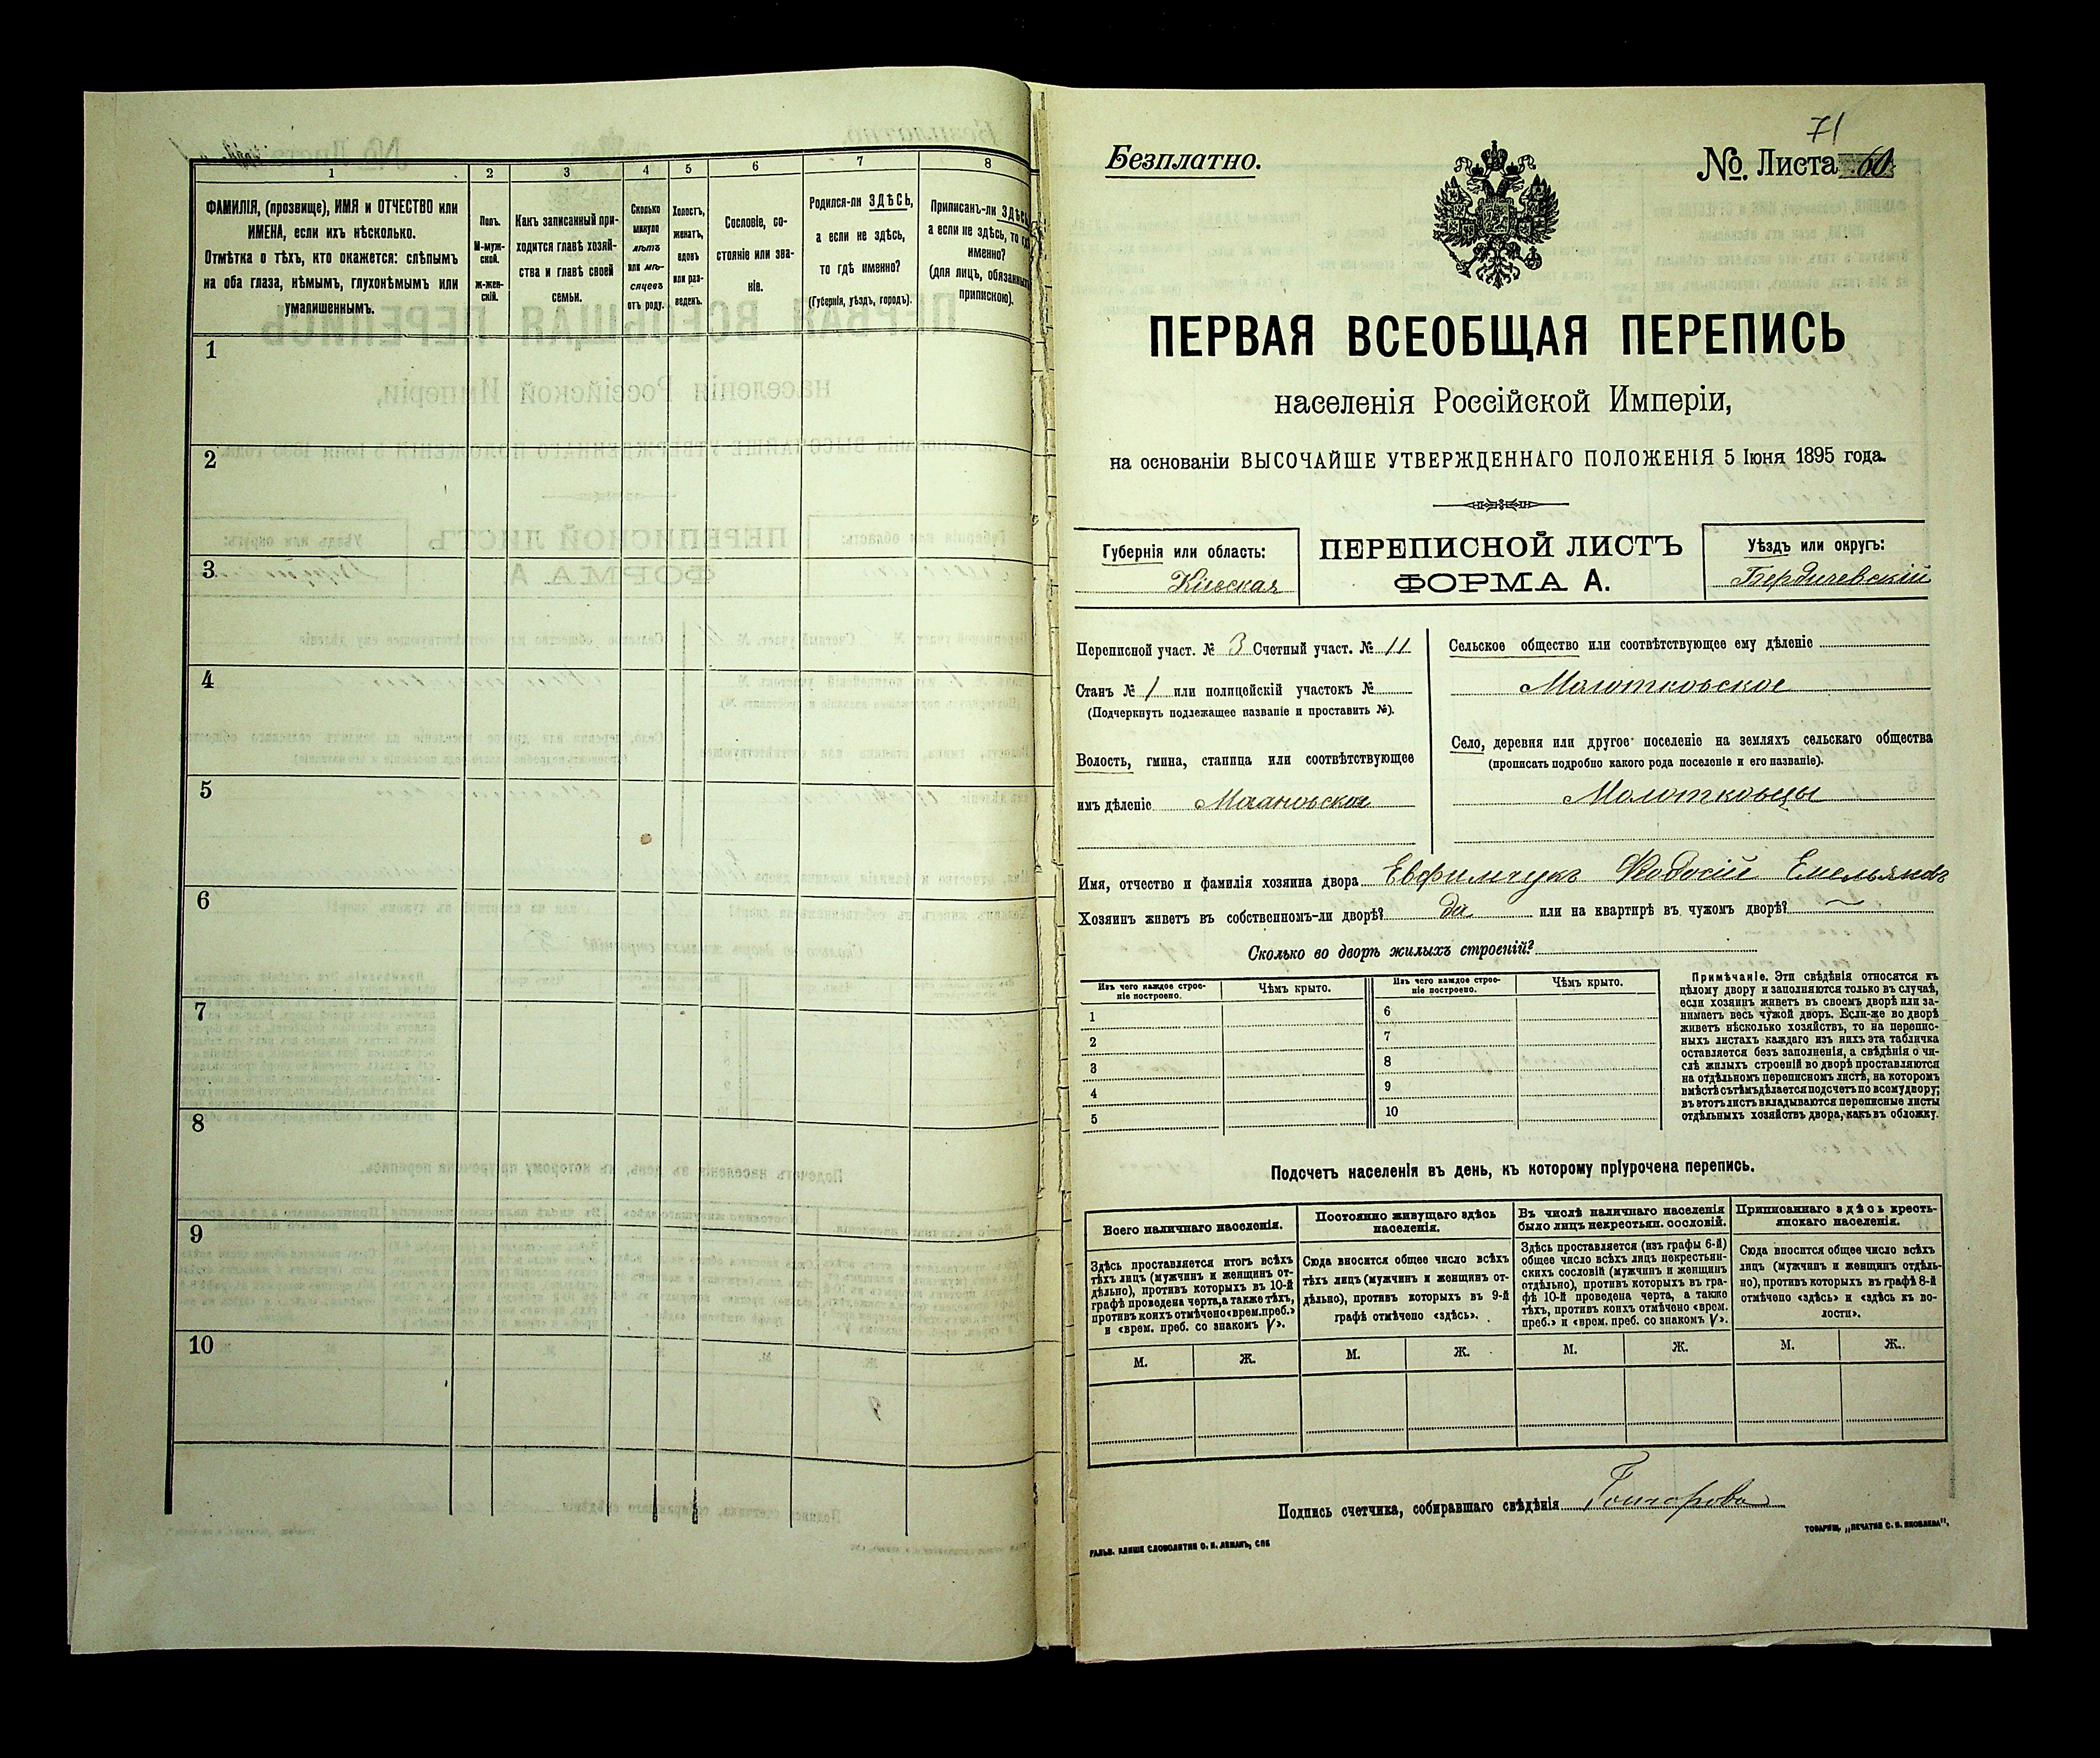 1 2 3 4 5 6 7 8
ФАМИЛІЯ, (прозвище), ИМЯ и ОТЧЕСТВО или
ИМЕНА, если ихъ нѣсколько.
Отмѣтка о тѣхъ, кто окажется: слѣпымъ
на оба глаза, нѣмымъ, глухонѣмымъ или
умалишеннымъ.
Полъ.
М-муж-
ской.
ж-жен-
скій.
Какъ записанный при-
ходится главѣ хозяй-
ства и главѣ своей
семьи.
Сколько
минуло
лѣтъ
или мѣ-
сяцевъ
отъ роду.
Холостъ,
женатъ,
вдовъ
или раз-
веденъ.
Сословіе, со-
стояніе или зва-
ніе.
Родился-ли ЗДѢСЬ,
а если не здѣсь,
то гдѣ именно?
(Губернія, уѣздъ, городъ).
Приписанъ-ли ЗДѢСЬ,
а если не здѣсь, то гдѣ
именно?
(для лицъ, обязанныхъ
припискою).
1
2
3
4
5
6
7
8
9
10
71
Безплатно.
№. Листа 60
ПЕРВАЯ ВСЕОБЩАЯ ПЕРЕПИСЬ
населенія Россійской Имперіи,
на основаніи ВЫСОЧАЙШЕ УТВЕРЖДЕННАГО ПОЛОЖЕНІЯ 5 Іюня 1895 года.
Губернія или область:
Кіевская
ПЕРЕПИСНОЙ ЛИСТЪ
ФОРМА А.
Уѣздъ или округъ:
Бердичевскій
Переписной участ. № 3 Счетный участ. № 11
Станъ № 1 или полицейскій участокъ №
(Подчеркнуть подлежащее названіе и проставить №).
Волость, гмина, станица или соотвѣтствующее
имъ дѣленіе
Сельское общество или соотвѣтствующее ему дѣленіе
Молотковское
Село, деревня или другое поселеніе на земляхъ сельскаго общества
(прописать подробно какого рода поселеніе и его названіе).
Молотковцы
Имя, отчество и фамилія хозяина двора Евфимчукъ Ѳодосій Емельяновъ
Хозяинъ живетъ въ собственномъ-ли дворѣ? да или на квартирѣ въ чужомъ дворѣ? —
Сколько во дворѣ жилыхъ строеній?
Изъ чего каждое строе-
ніе построено.
Чѣмъ крыто.
Изъ чего каждое строе-
ніе построено.
Чѣмъ крыто.
1
2
3
4
5
6
7
8
9
10
Примѣчаніе. Эти свѣдѣнія относятся къ
цѣлому двору и заполняются только въ случаѣ,
если хозяинъ живетъ въ своемъ дворѣ или за-
нимаетъ весь чужой дворъ. Если-же во дворѣ
живетъ нѣсколько хозяйствъ, то на перепис-
ныхъ листахъ каждаго изъ нихъ эта табличка
оставляется безъ заполненія, а свѣдѣнія о чи-
слѣ жилыхъ строеній во дворѣ проставляются
на отдѣльномъ переписномъ листѣ, на которомъ
вмѣстѣ съ тѣмъ дѣлается подсчетъ по всему двору;
въ этотъ листъ вкладываются переписные листы
отдѣльныхъ хозяйствъ двора, какъ въ обложку.
Подсчетъ населенія въ день, къ которому пріурочена перепись.
Всего наличнаго населенія.
Здѣсь проставляется итогъ всѣхъ
тѣхъ лицъ (мужчинъ и женщинъ от-
дѣльно), противъ которыхъ въ 10-й
графѣ проведена черта, а также тѣхъ,
противъ коихъ отмѣчено «врем. преб.»
и «врем. преб. со знакомъ V».
Постоянно живущаго здѣсь
населенія.
Сюда вносится общее число всѣхъ
тѣхъ лицъ (мужчинъ и женщинъ от-
дѣльно), противъ которыхъ въ 9-й
графѣ отмѣчено «здѣсь».
Въ числѣ наличнаго населенія
было лицъ некрестьян. сословій.
Здѣсь проставляется (изъ графы 6-й)
общее число всѣхъ лицъ некрестьян-
скихъ сословій (мужчинъ и женщинъ
отдѣльно), противъ которыхъ въ гра-
фѣ 10-й проведена черта, а также
тѣхъ, противъ коихъ отмѣчено «врем.
преб.» и «врем. преб. со знакомъ V».
Приписаннаго здѣсь кресть-
янскаго населенія.
Сюда вносится общее число всѣхъ
лицъ (мужчинъ и женщинъ отдѣль-
но), противъ которыхъ въ графѣ 8-й
отмѣчено «здѣсь» и «здѣсь къ во-
лости».
М. Ж. М. Ж. М. Ж. М. Ж.
Подпись счетчика, собиравшаго свѣдѣнія
ГАЛЬВ. КЛИШЕ СЛОВОЛИТНИ О. И. ЛЕМАНЪ, СПБ
ТОВАРИЩ. „ПЕЧАТНЯ С. П. ЯКОВЛЕВА“.